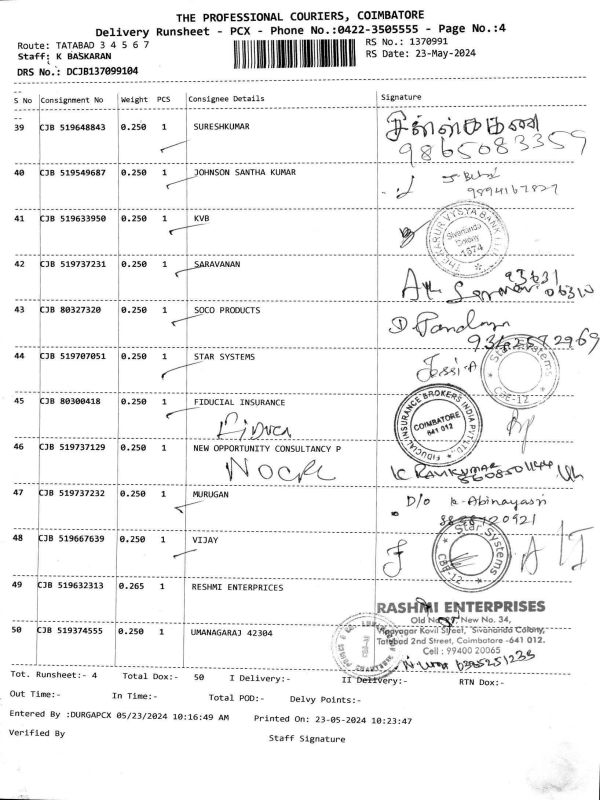 THE PROFESSIONAL COURIERS, COIMBATORE
Delivery Runsheet - PCX - Phone No.:0422-3505555 - Page No.:4
Route: TATABAD 3 4 5 6 7
RS No.: 1370991
Staff: K BASKARAN
RS Date: 23-May-2024
DRS No.: DCJB137099104
S No Consignment No Weight PCS Consignee Details Signature
39 CJB 519648843 0.250 1 SURESHKUMAR
9865083359
40 CJB 519549687 0.250 1 JOHNSON SANTHA KUMAR
9894167827
41 CJB 519633950 0.250 1 KVB
THE KARUR VYSYA BANK LTD
Sivananda Colony
1674
42 CJB 519737231 0.250 1 SARAVANAN
93631
06310
43 CJB 80327320 0.250 1 SOCO PRODUCTS
9362572969
44 CJB 519707051 0.250 1 STAR SYSTEMS
Jessi-A
Star Systems
CBE-12
45 CJB 80300418 0.250 1 FIDUCIAL INSURANCE
FIDUCIAL INSURANCE BROKERS INDIA PVT LTD.
COIMBATORE
641 012
46 CJB 519737129 0.250 1 NEW OPPORTUNITY CONSULTANCY P
K RAVIKUMAR
47 CJB 519737232 0.250 1 MURUGAN
D/o K-Abinayasri
48 CJB 519667639 0.250 1 VIJAY
Star Systems
CBE-12
49 CJB 519632313 0.265 1 RESHMI ENTERPRICES
RASHMI ENTERPRISES
New No. 34,
Kovil Street, Sivananda Colony,
Tatabad 2nd Street, Coimbatore -641 012.
Cell : 99400 20065
50 CJB 519374555 0.250 1 UMANAGARAJ 42304
Tot. Runsheet:- 4 Total Dox:- 50 I Delivery:- II Delivery:- RTN Dox:-
Out Time:- In Time:- Total POD:- Delvy Points:-
Entered By :DURGAPCX 05/23/2024 10:16:49 AM Printed On: 23-05-2024 10:23:47
Verified By Staff Signature